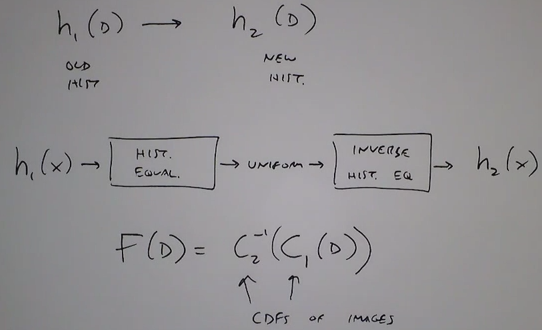 h₁(D) → h₂(D)
OLD NEW
HIST HIST.
h₁(x) → HIST. EQUAL. → UNIFORM → INVERSE HIST. EQ → h₂(x)
F(D) = C₂⁻¹(C₁(D))
↑ ↑
CDFS OF IMAGES